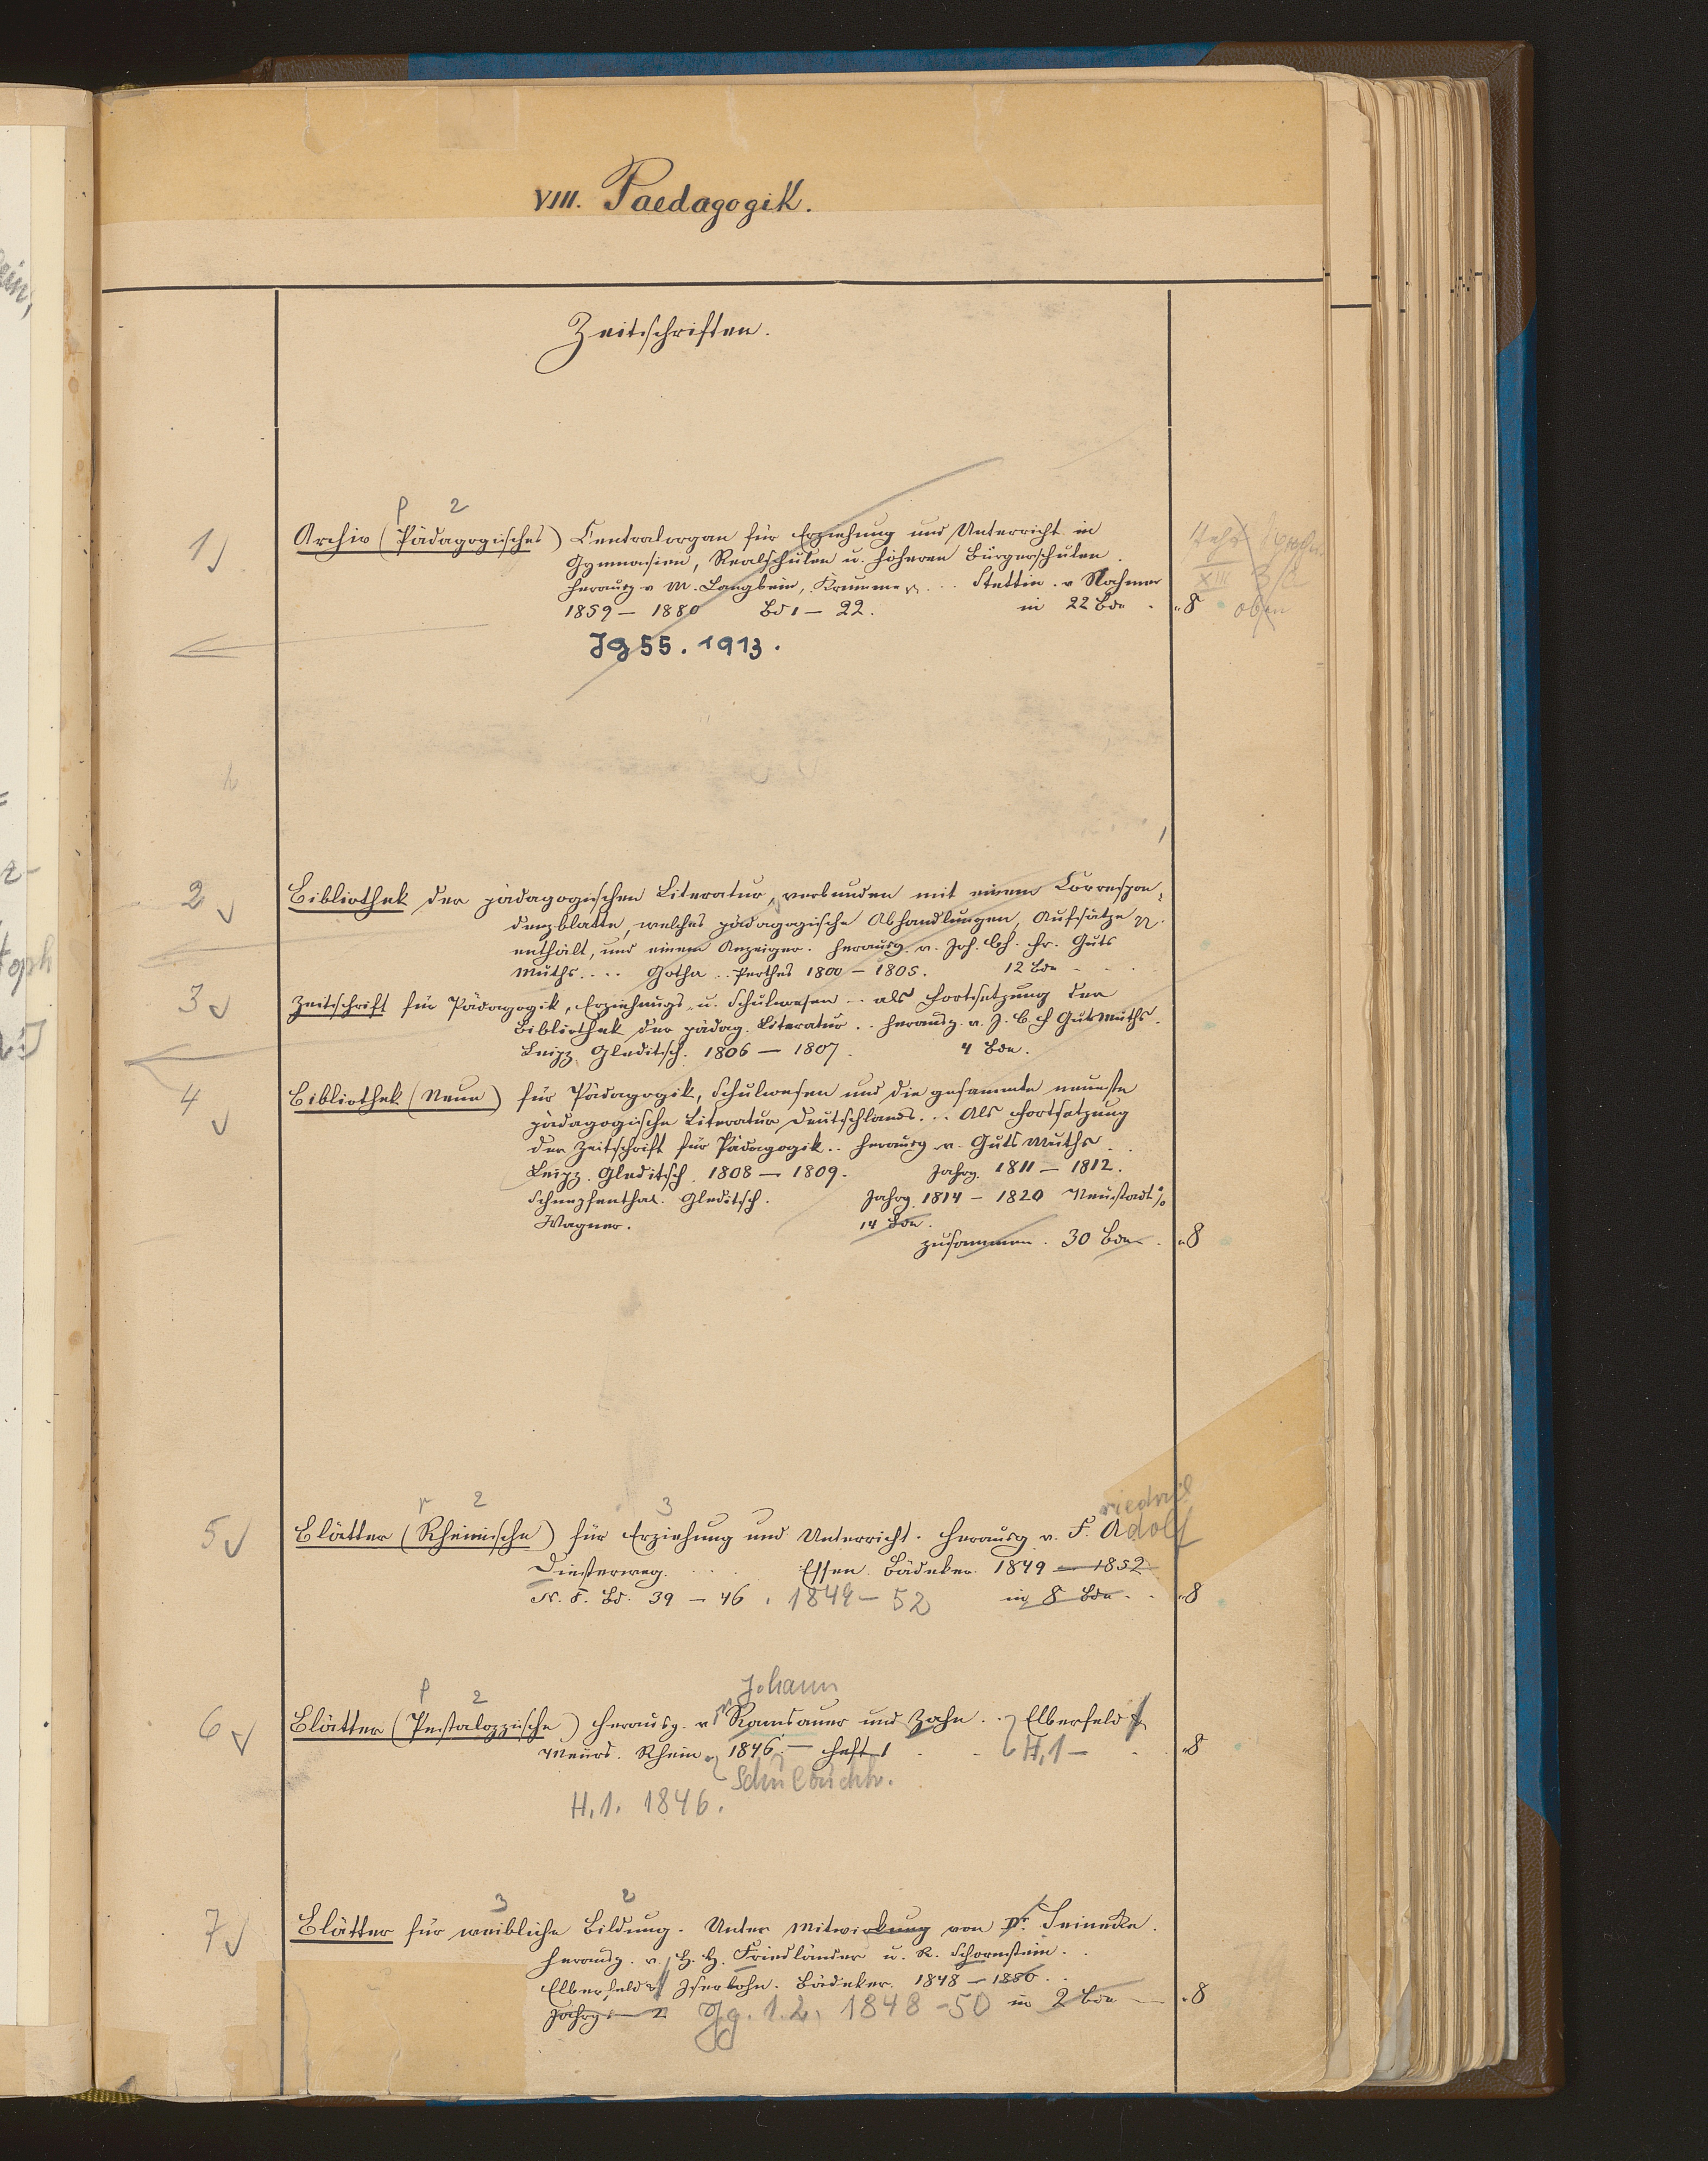 VIII. Paedagogik.
Zeitschriften.
p 2
1) Archiv (Pädagogisches) Centralorgan für Erziehung und Unterricht in
Gymnasien, Realschulen u. höheren Bürgerschulen.
herausg v W. Langbein, Krumme ... Stettin. v Nahmer
1859 – 1880 Bd 1 – 22. in 22 Bde. „8
XIII
oben
Jg 55. 1913.
2 Bibliothek der pädagogischen Literatur, verbunden mit einem Correspon-
denzblatte, welches pädagogische Abhandlungen, Aufsätze
enthält, und einem Anzeiger. herausg. v. Joh. Ch. Fr. Guts
Muths.... Gotha.. Perthes 1800 – 1805. 12 Bde
3 Zeitschrift für Pädagogik, Erziehungs- u. Schulwesen .. als Fortsetzung der
Bibliothek der pädag. Literatur .. herausg. v. J. C. F GutsMuths.
Leipz. Gleditsch. 1806 – 1807. 4 Bde.
4 Bibliothek (Neue) für Pädagogik, Schulwesen und die gesammte neueste
pädagogische Literatur Deutschlands... Als Fortsetzung
der Zeitschrift für Pädagogik.. herausg v. Guts Muths.
Leipz. Gleditsch. 1808 – 1809. Jahrg. 1811 – 1812.
Schnepfenthal. Gleditsch. Jahrg. 1814 – 1820 Neustadt %
Wagner. 14 Bde.
zusammen. 30 Bde. „8
r 2 3 riedrich
5 Blätter (Rheinische) für Erziehung und Unterricht. herausg v. F. Adolf
Diesterweg. Essen. Bädeker. 1849 – 1852
N. F. Bd. 39 – 46. 1849 – 52 in 8 Bde. „8
p 2 Johann
6 Blätter (Pestalozzische) herausg. v. Ramsauer und Zahn... Elberfeld
Meurs. Rhein. 1846. – Heft 1 H. 1 – „8
Schulbuchh.
H. 1. 1846.
3 2
7 Blätter für weibliche Bildung. Unter Mitwirkung von Dr. Seinecke.
herausg. v. H. Friedländer u. R. Schornstein.
Elberfeld u Iserlohn. Bädeker. 1848 – 1850.
Jahrg 1 – 2 Jg. 1. 2. 1848 – 50 in 2 Bde – „8